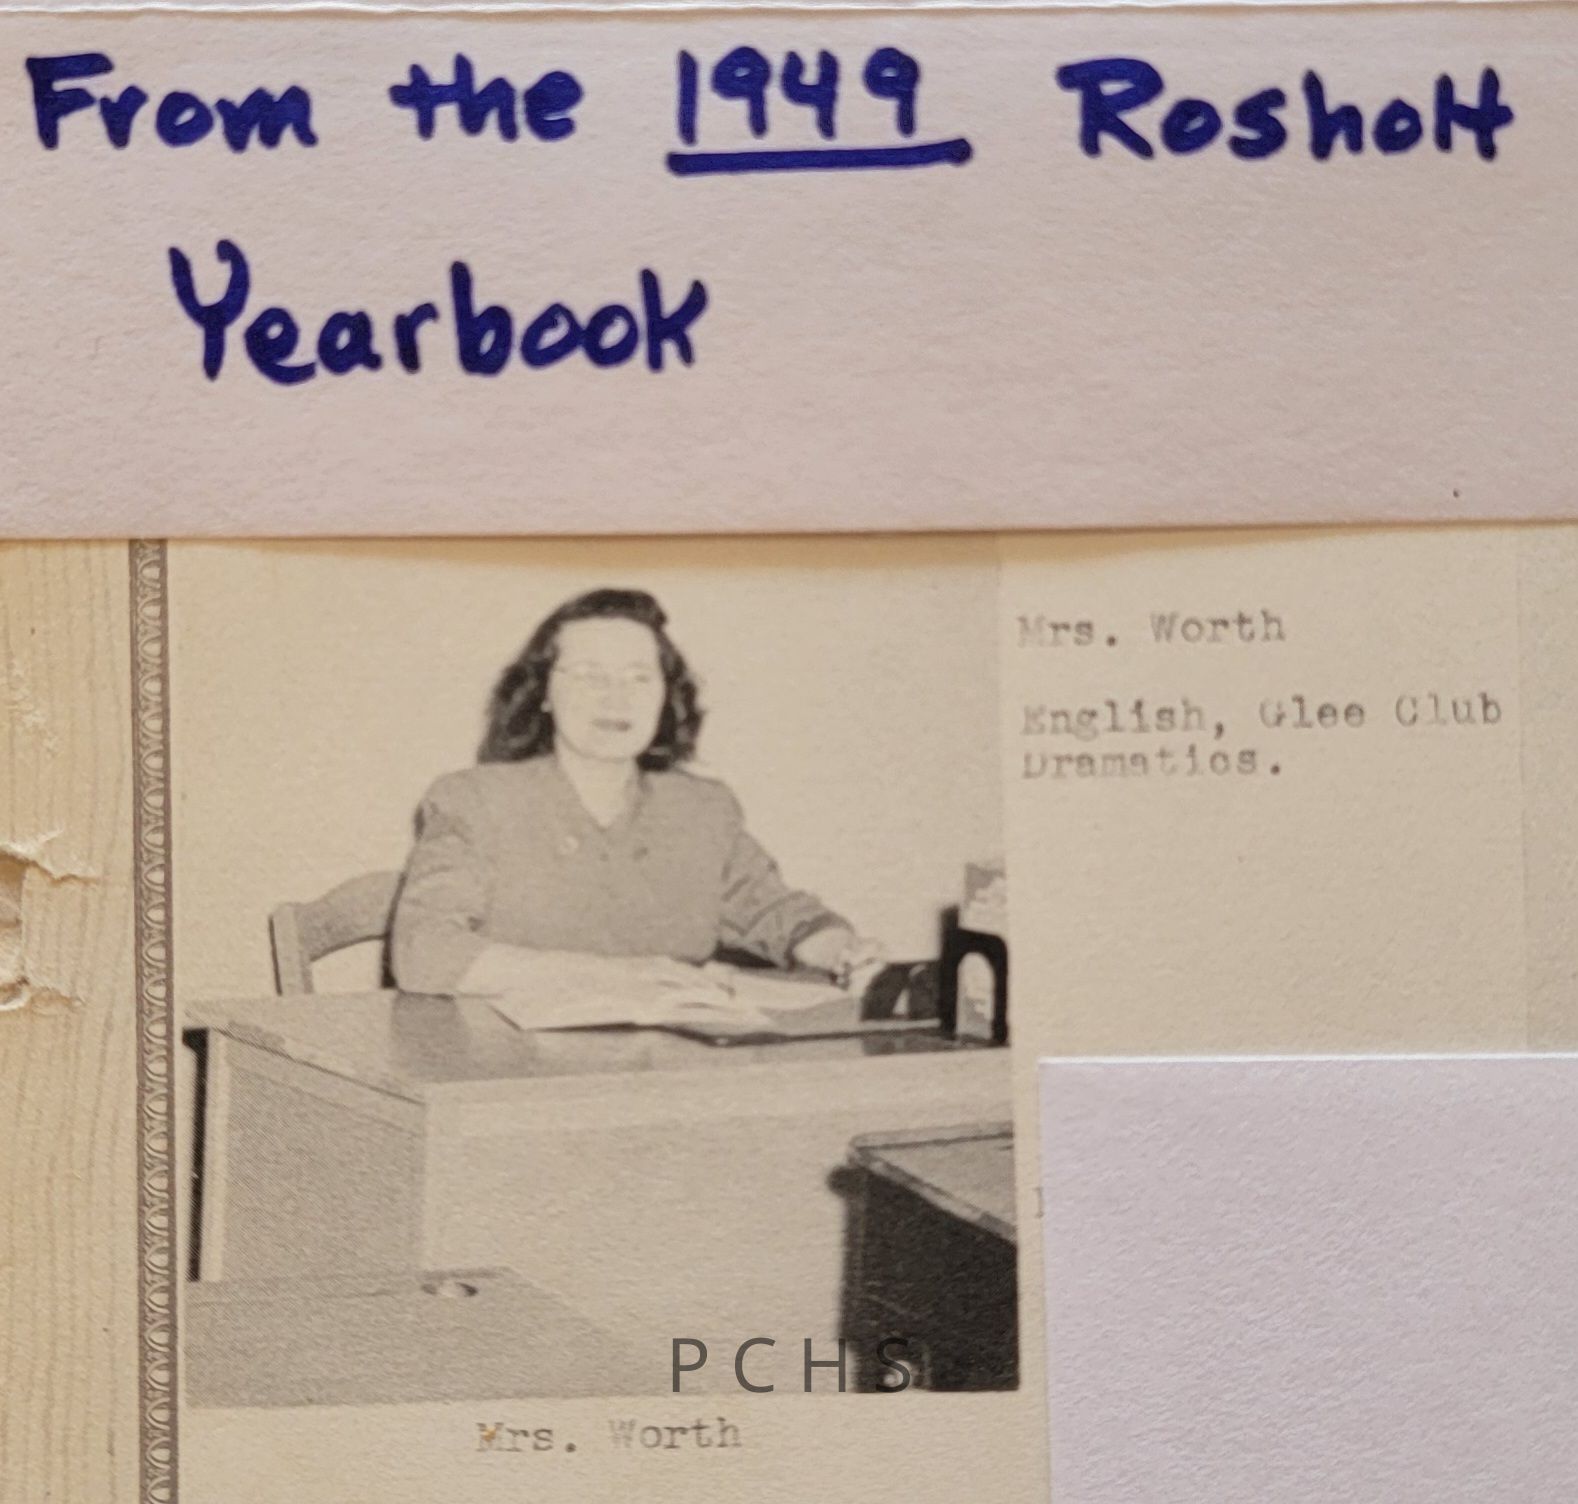 From the 1949 Rosholt
Yearbook
Mrs. Worth
English, Glee Club
Dramatics.
PCHS
Mrs. Worth